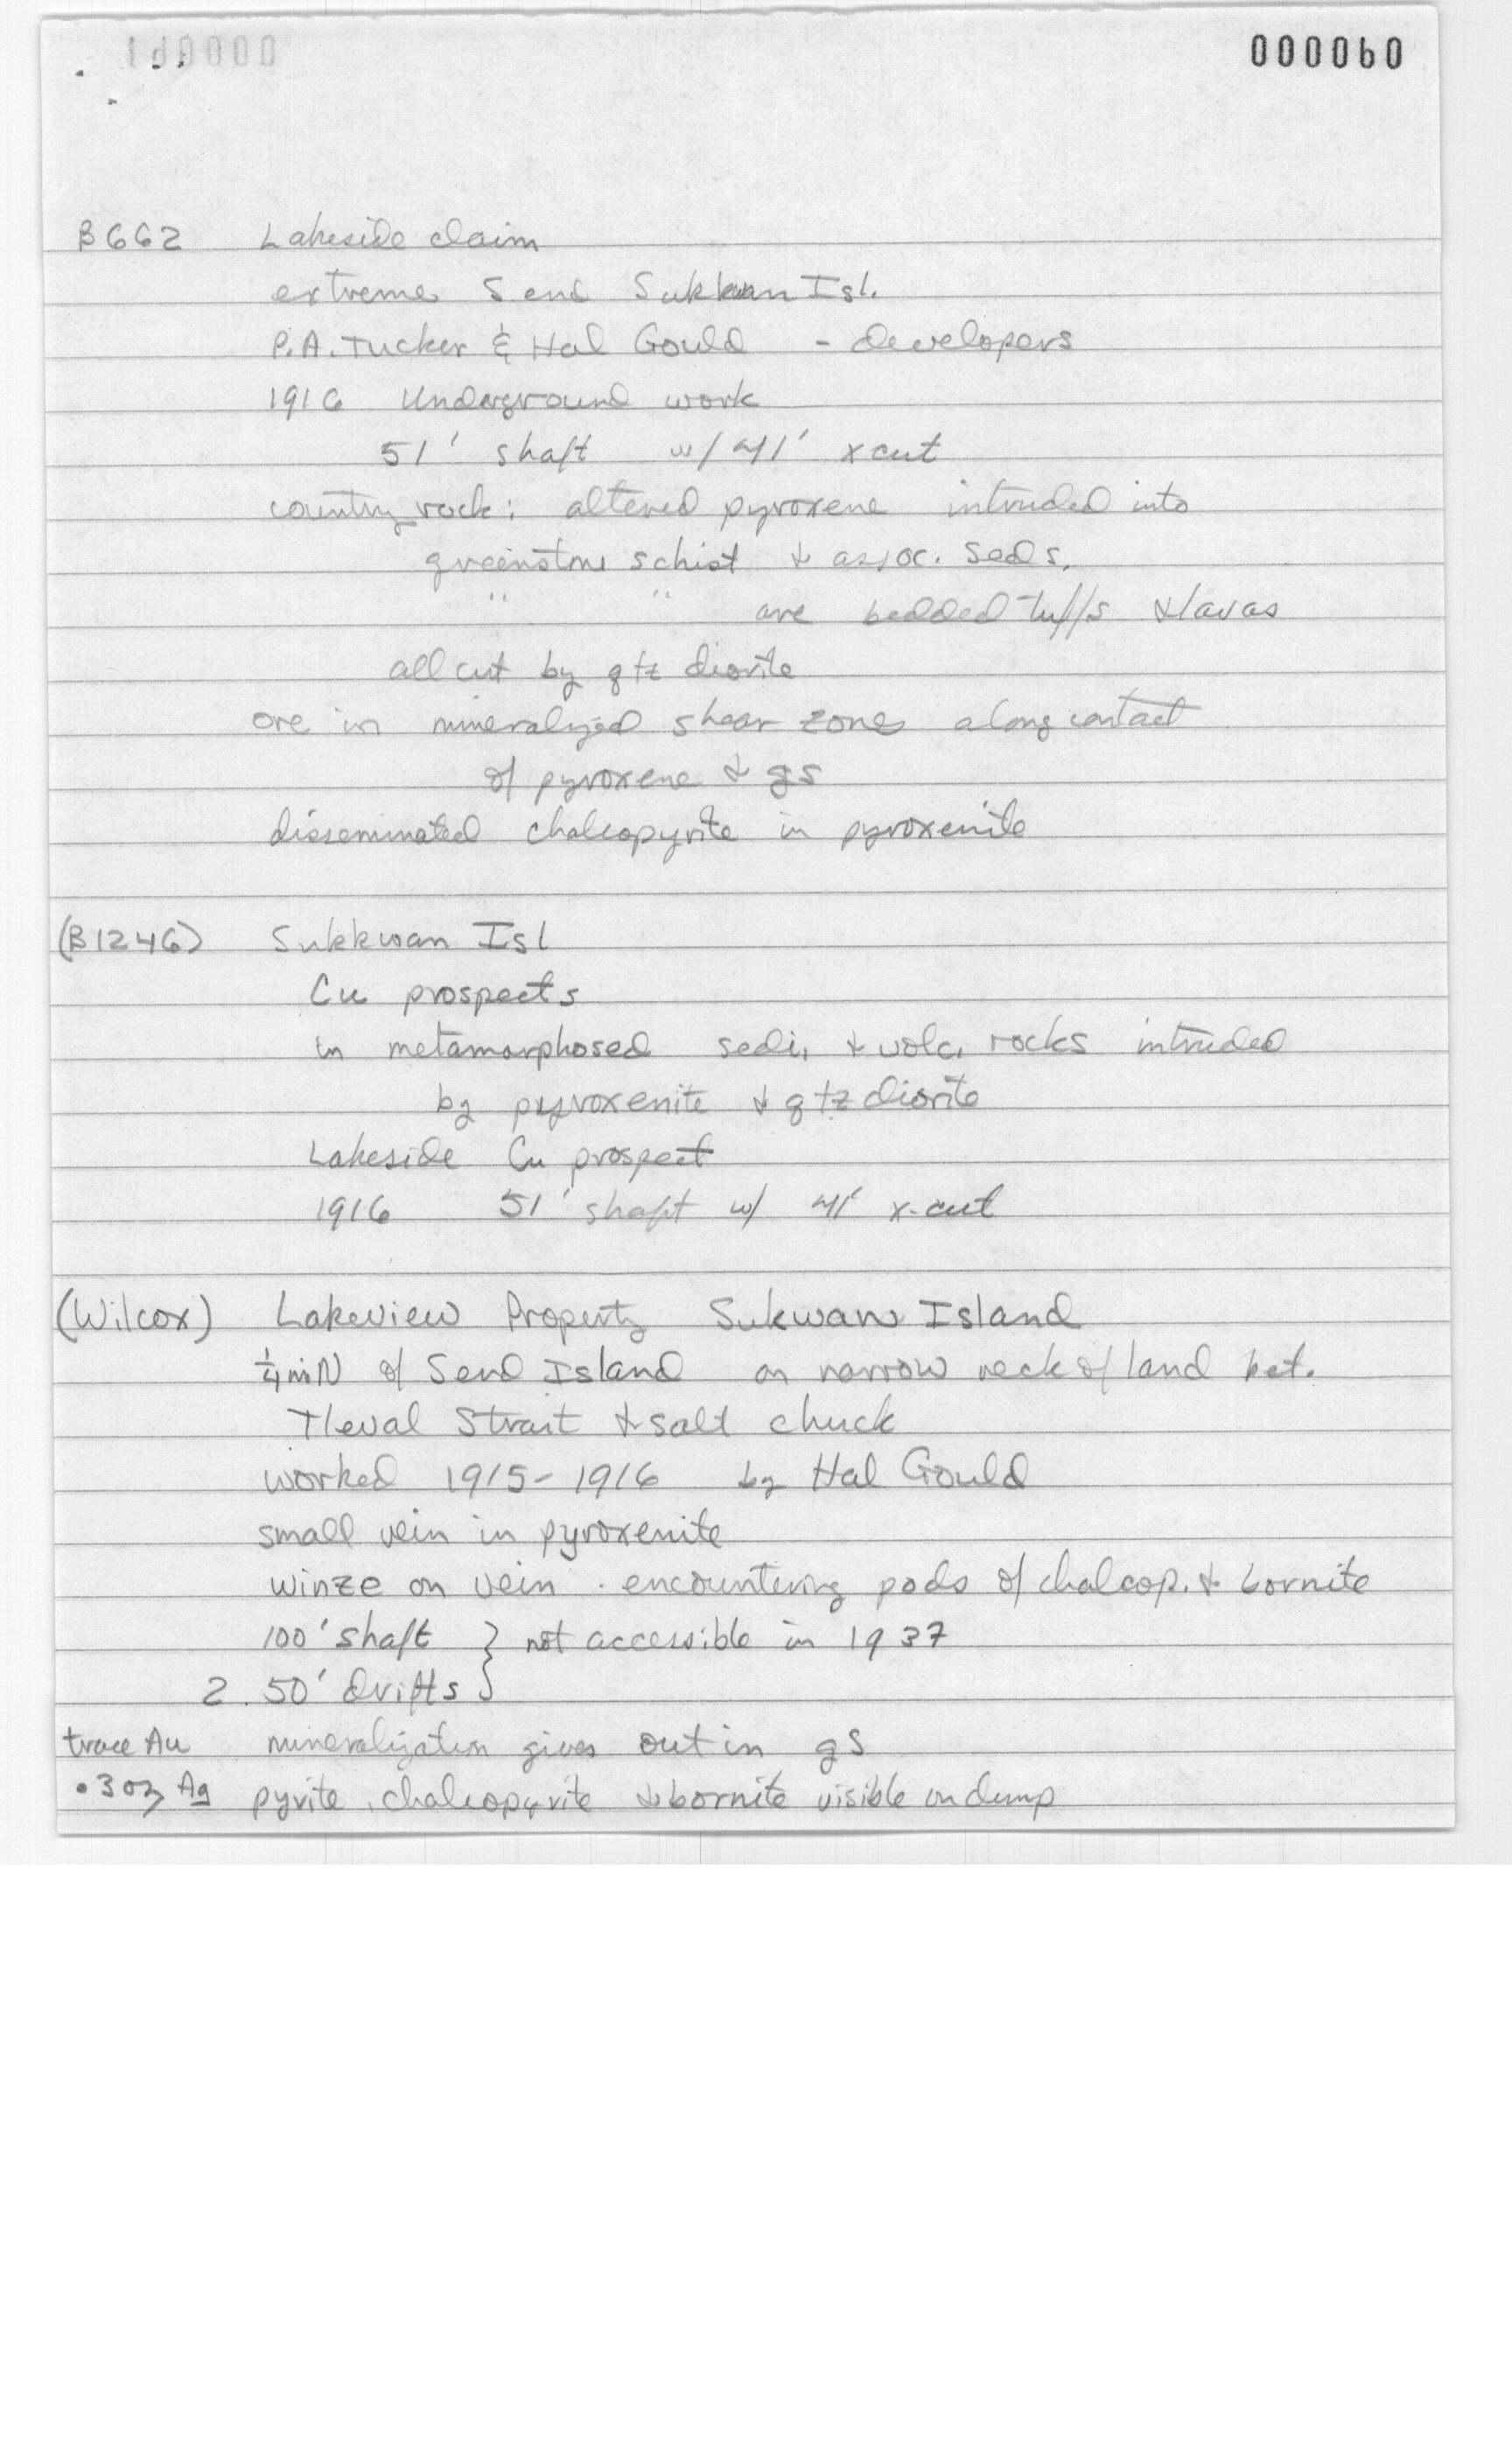 000060
B662 Lakeside claim
extreme S end Sukkwan Isl.
P.A. Tucker & Hal Gould - developers
1916 Underground work
51' shaft w/ 41' xcut
country rock: altered pyroxene intruded into
greenstone schist & assoc. seds.
" " are bedded tuffs & lavas
all cut by qtz diorite
ore in mineralized shear zones along contact
of pyroxene & gs
disseminated chalcopyrite in pyroxenite
(B1246) Sukkwan Isl
Cu prospects
in metamorphosed sedi. & volc. rocks intruded
by pyroxenite & qtz diorite
Lakeside Cu prospect
1916 51' shaft w/ 41' x-cut
(Wilcox) Lakeview Property Sukwan Island
1/4 mi N of S end Island on narrow neck of land bet.
Tleval Strait & salt chuck
worked 1915-1916 by Hal Gould
small vein in pyroxenite
winze on vein - encountering pods of chalcop. & bornite
100' shaft } not accessible in 1937
2 50' drifts }
trace Au mineralization gives out in gs
.3 oz Ag pyrite, chalcopyrite & bornite visible on dump